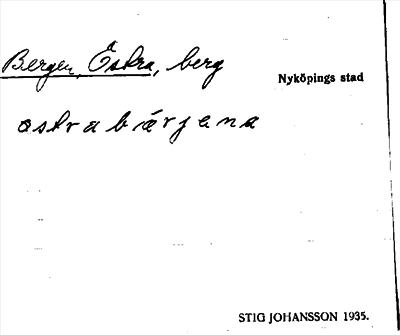 Bergen, Östra, berg
Nyköpings stad
östrabärjena
STIG JOHANSSON 1935.